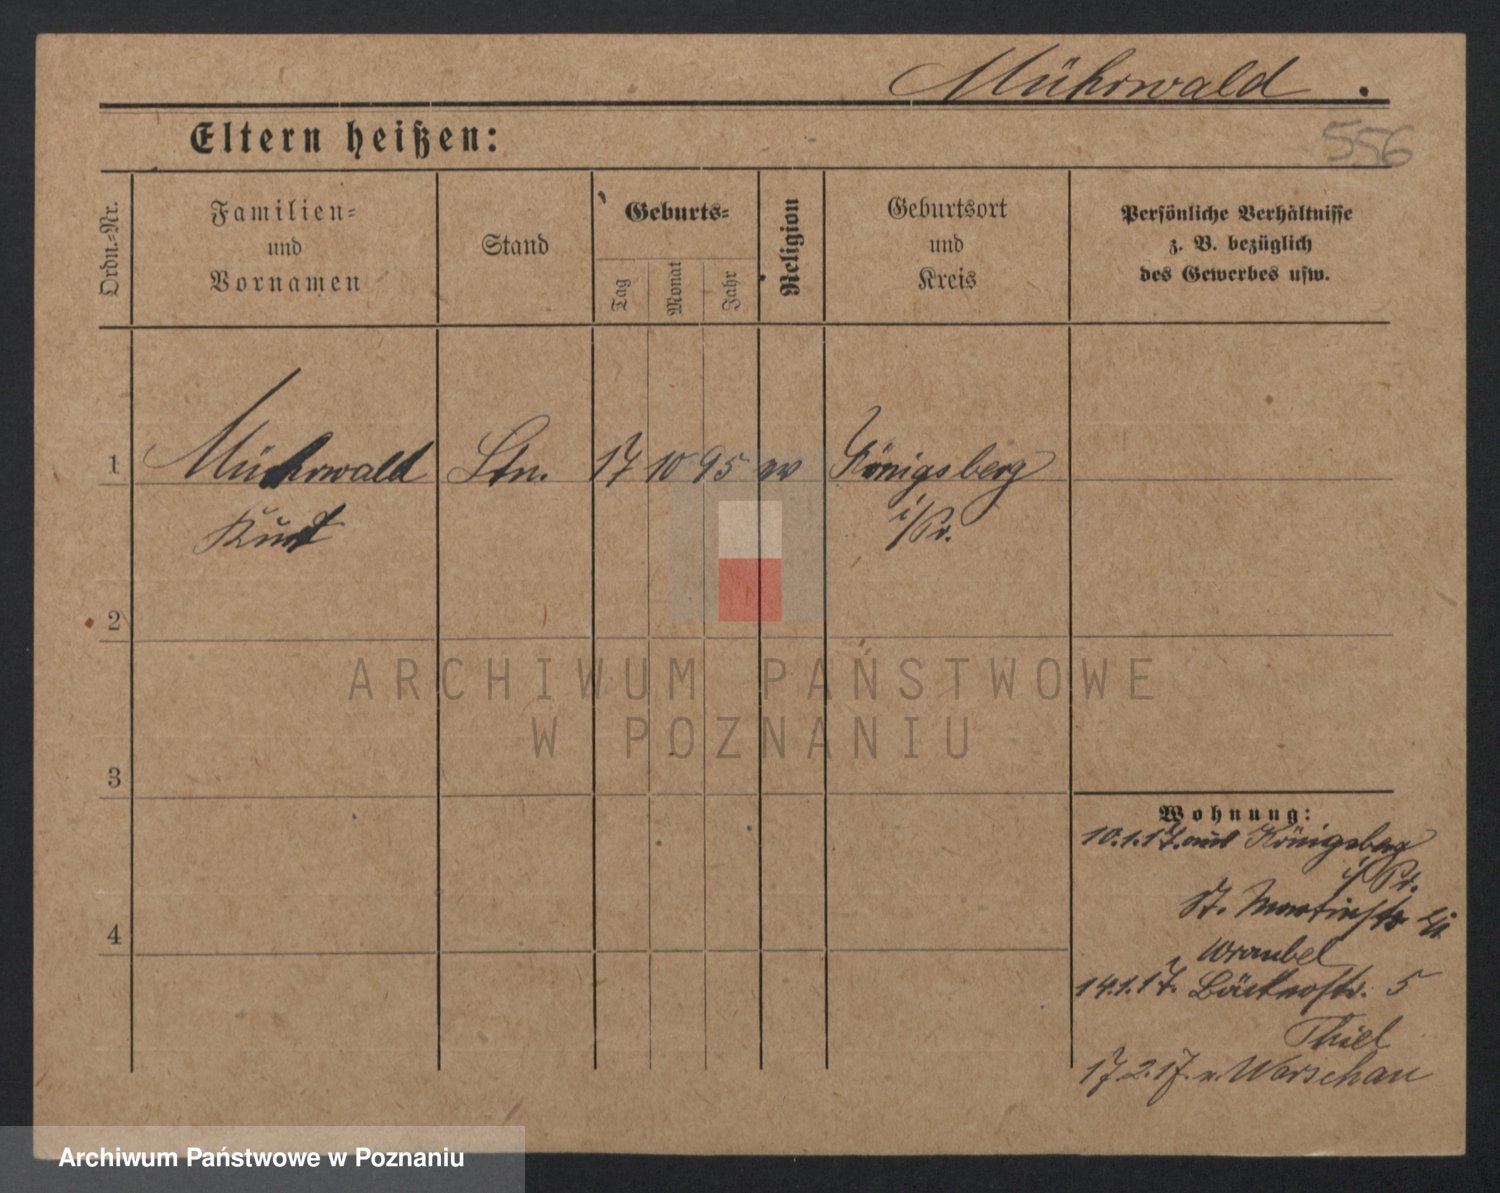 Mührwald.
Eltern heißen:
556
Ordn.-Nr.
Familien-
und
Vornamen
Stand
Geburts-
Tag
Monat
Jahr
Religion
Geburtsort
und
Kreis
Persönliche Verhältnisse
z. B. bezüglich
des Gewerbes usw.
1 Mührwald Stn. 17 10 95 ev Königsberg
Kurt i/Pr.
2
3
4
Wohnung:
10.1.17. aus Königsberg
i/Pr.
St. Martinstr
Wraubel
14.1.17. Bäckerstr. 5
Thiel
17.2.17. n. Warschau
ARCHIWUM PAŃSTWOWE
W POZNANIU
Archiwum Państwowe w Poznaniu